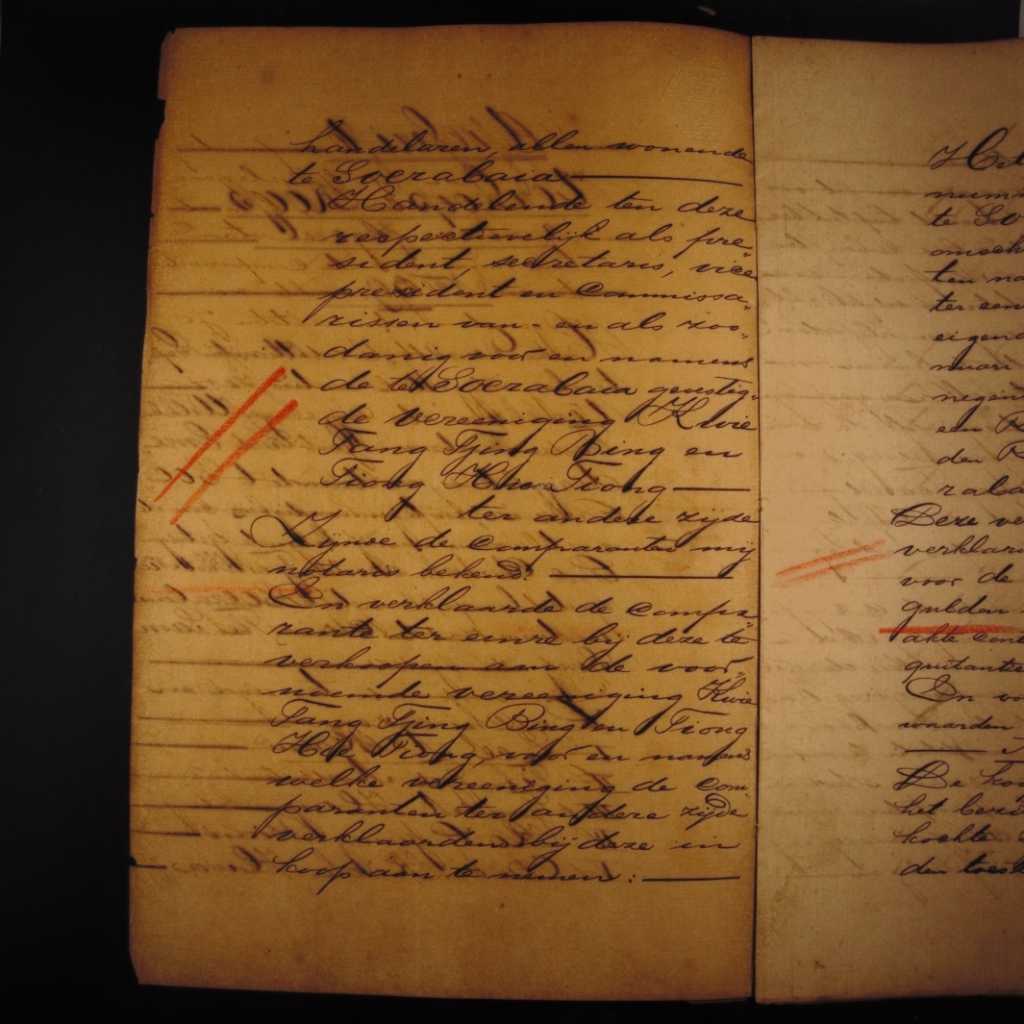 handelaren, allen wonende
te Soerabaia
Handelende ten deze
respectievelijk als pre
sident, secretaris, vice
president en Commissa„
rissen van- en als zoo„
danig voor en namens
de te Soerabaia gevestig„
de vereeniging Kwie
Tang Tjing Bing en
Tiong Hwa Tiong
ter andere zijde
Zijnde de comparanten mij
notaris bekend.
En verklaarde de compa„
rante ter eenre bij deze te
verkoopen aan de voor„
noemde vereeniging Kwie
Tang Tjing Bing en Tiong
Hoa Tiong, voor en namens
welke vereeniging de com
paranten ter andere zijde
verklaarden bij deze in
koop aan te nemen:
te So
ten na
ter een
eigend
negen
een R
den R
raba
Deze ver
verklar
voor de
gulden
akte
quitantie
En vo
waarden
De
het bezi
kochte
den toes